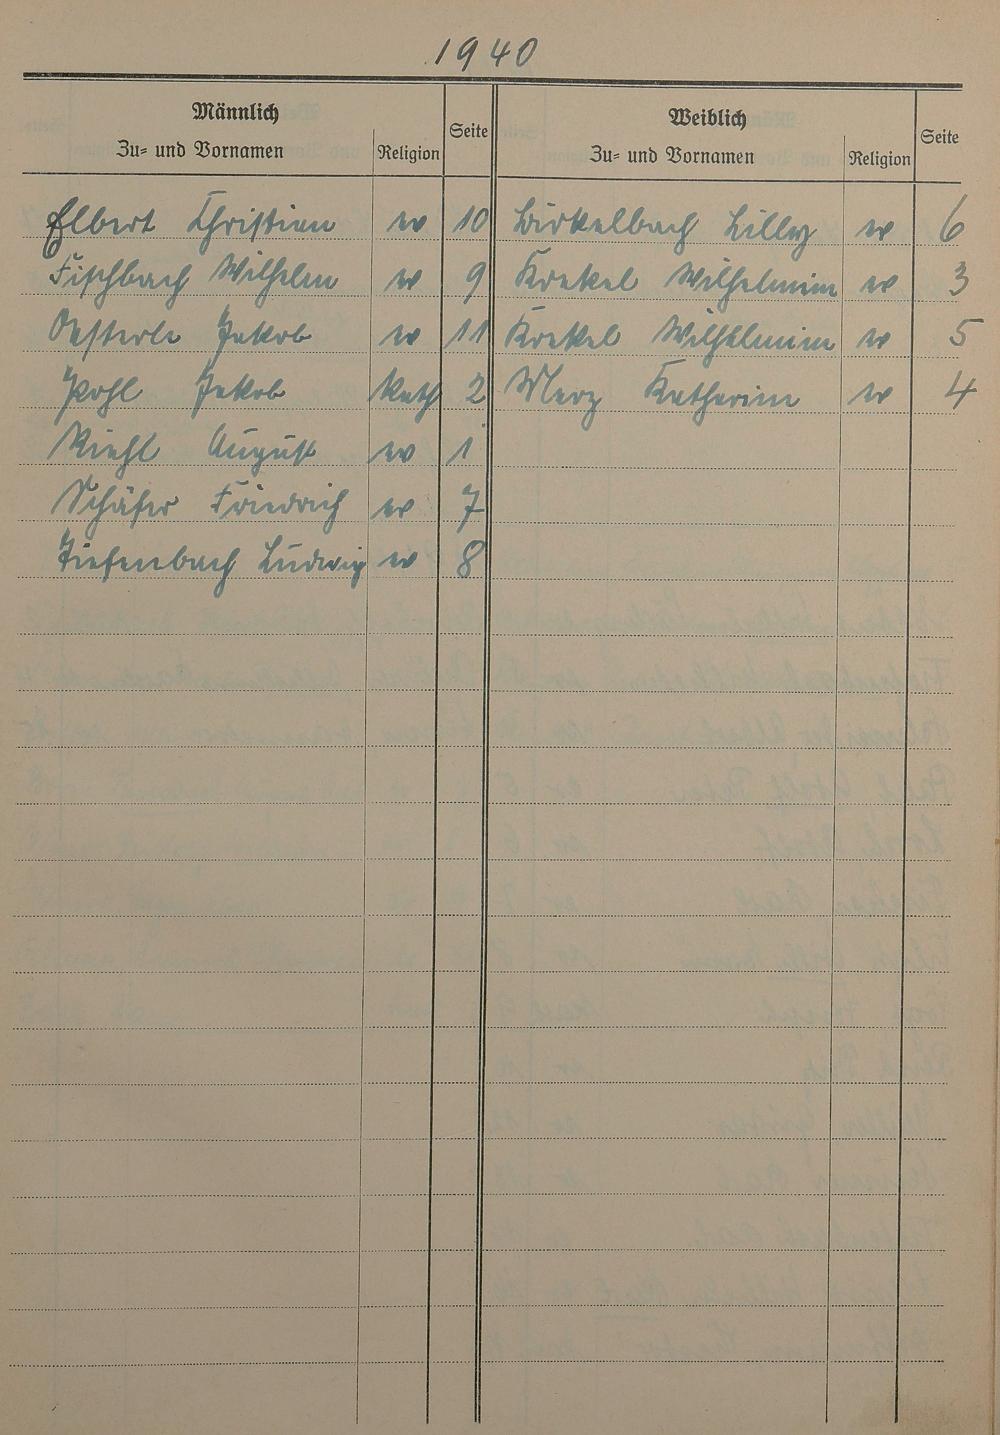 1940
Männlich
Zu- und Vornamen Religion Seite
Elbert Christian ev 10
Fischbach Wilhelm ev 9
Oesterle Jakob ev 11
Pohl Jakob kath 2
Riehl August ev 1
Schäfer Friedrich ev 7
Tiefenbach Ludwig ev 8
Weiblich
Zu- und Vornamen Religion Seite
Birkelbach Lilly ev 6
Krekel Wilhelmine ev 3
Krekel Wilhelmine ev 5
Merz Katharine ev 4